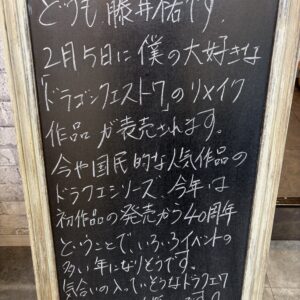 どうも藤井祐です。
2月5日に僕の大好きな
「ドラゴンクエスト7」のリメイク
作品が表売されます。
今や国民的な人気作品の
ドラクエシリーズ、今年は
初作品の発売から40周年
ということで、いろいろイベントの
多い年になりそうです。
気合いの入っているどんなドラクエワ